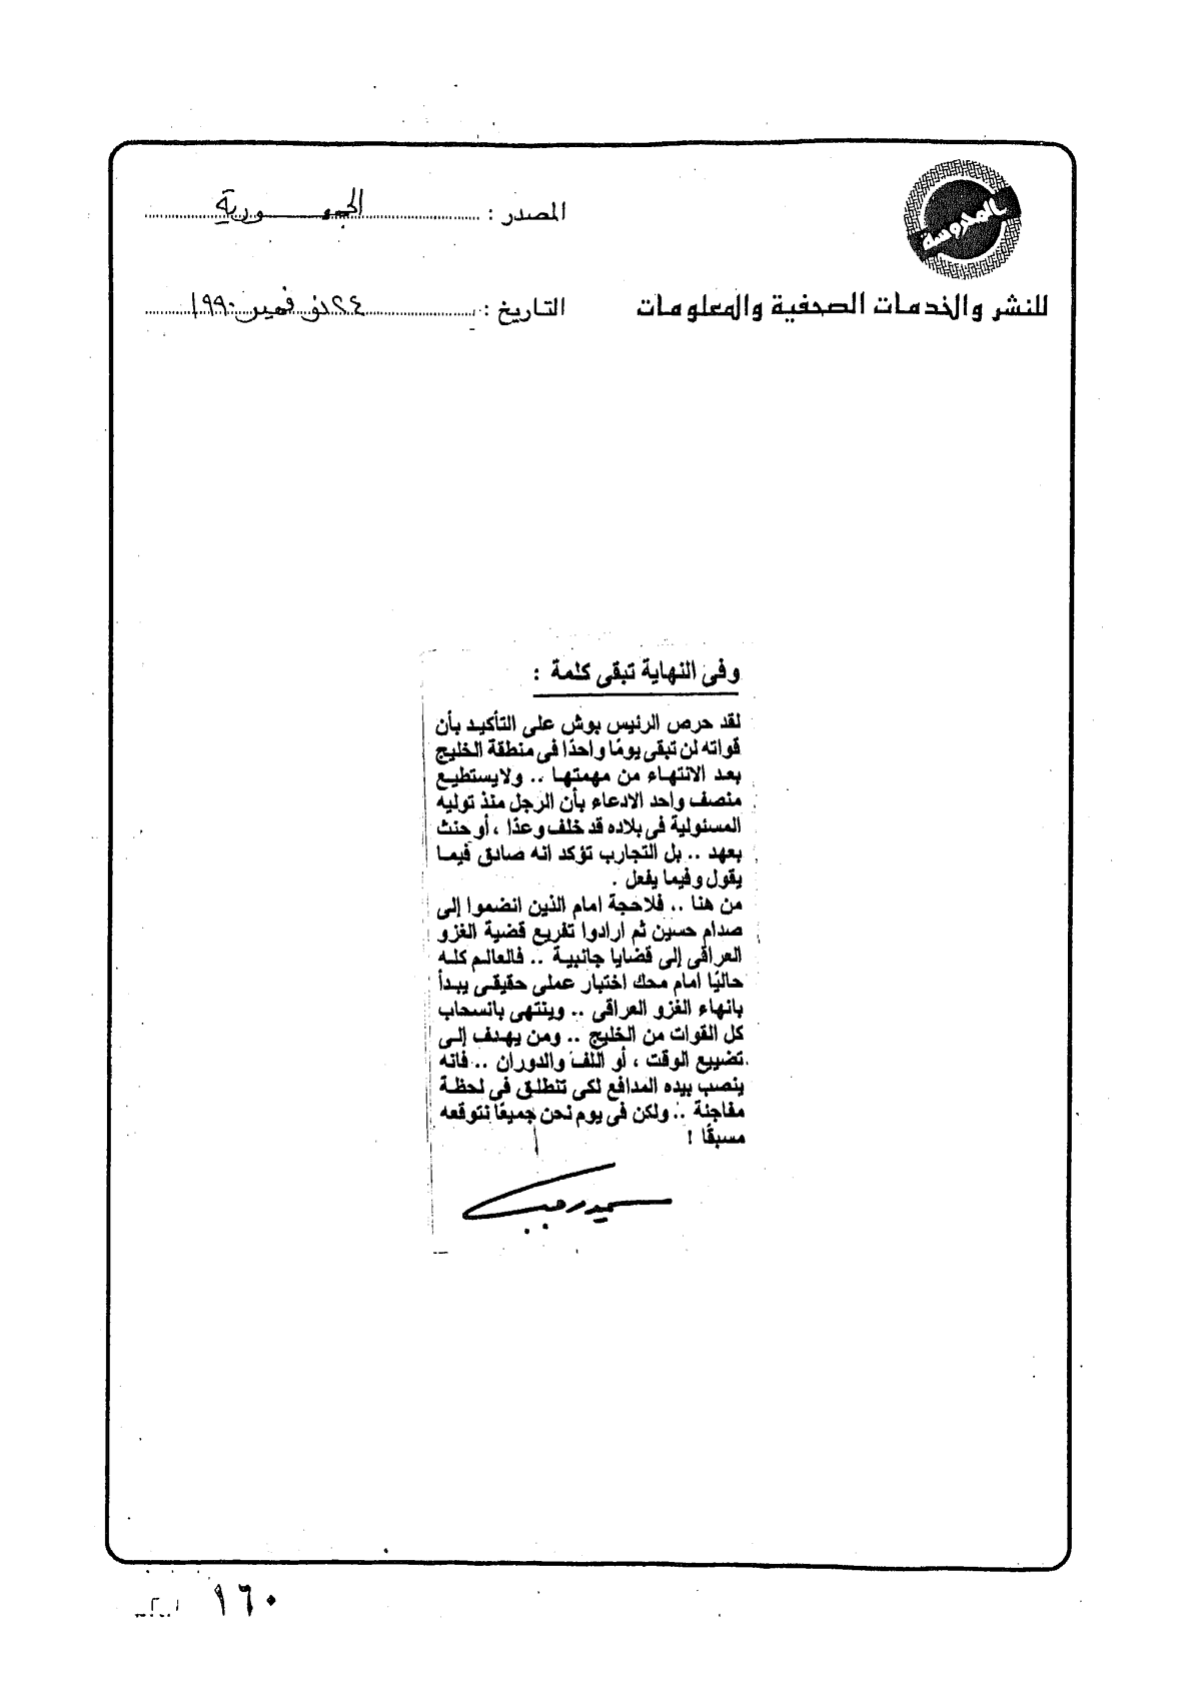 المحروسة
للنشر والخدمات الصحفية والمعلومات
المصدر : الجمهورية
التاريخ : ٢٤ نوفمبر ١٩٩٠
وفى النهاية تبقى كلمة :
لقد حرص الرئيس بوش على التأكيد بأن
قواته لن تبقى يومًا واحدًا فى منطقة الخليج
بعد الانتهاء من مهمتها .. ولايستطيع
منصف واحد الادعاء بأن الرجل منذ توليه
المسئولية فى بلاده قد خلف وعدًا ، أو حنث
بعهد .. بل التجارب تؤكد انه صادق فيما
يقول وفيما يفعل .
من هنا .. فلاحجة امام الذين انضموا إلى
صدام حسين ثم ارادوا تفريع قضية الغزو
العراقى إلى قضايا جانبية .. فالعالم كله
حاليًا امام محك اختبار عملى حقيقى يبدأ
بانهاء الغزو العراقى .. وينتهى بانسحاب
كل القوات من الخليج .. ومن يهدف إلى
تضييع الوقت ، أو اللف والدوران .. فانه
ينصب بيده المدافع لكى تنطلق فى لحظة
مفاجئة .. ولكن فى يوم نحن جميعًا نتوقعه
مسبقًا !
سمير رجب
١٦٠